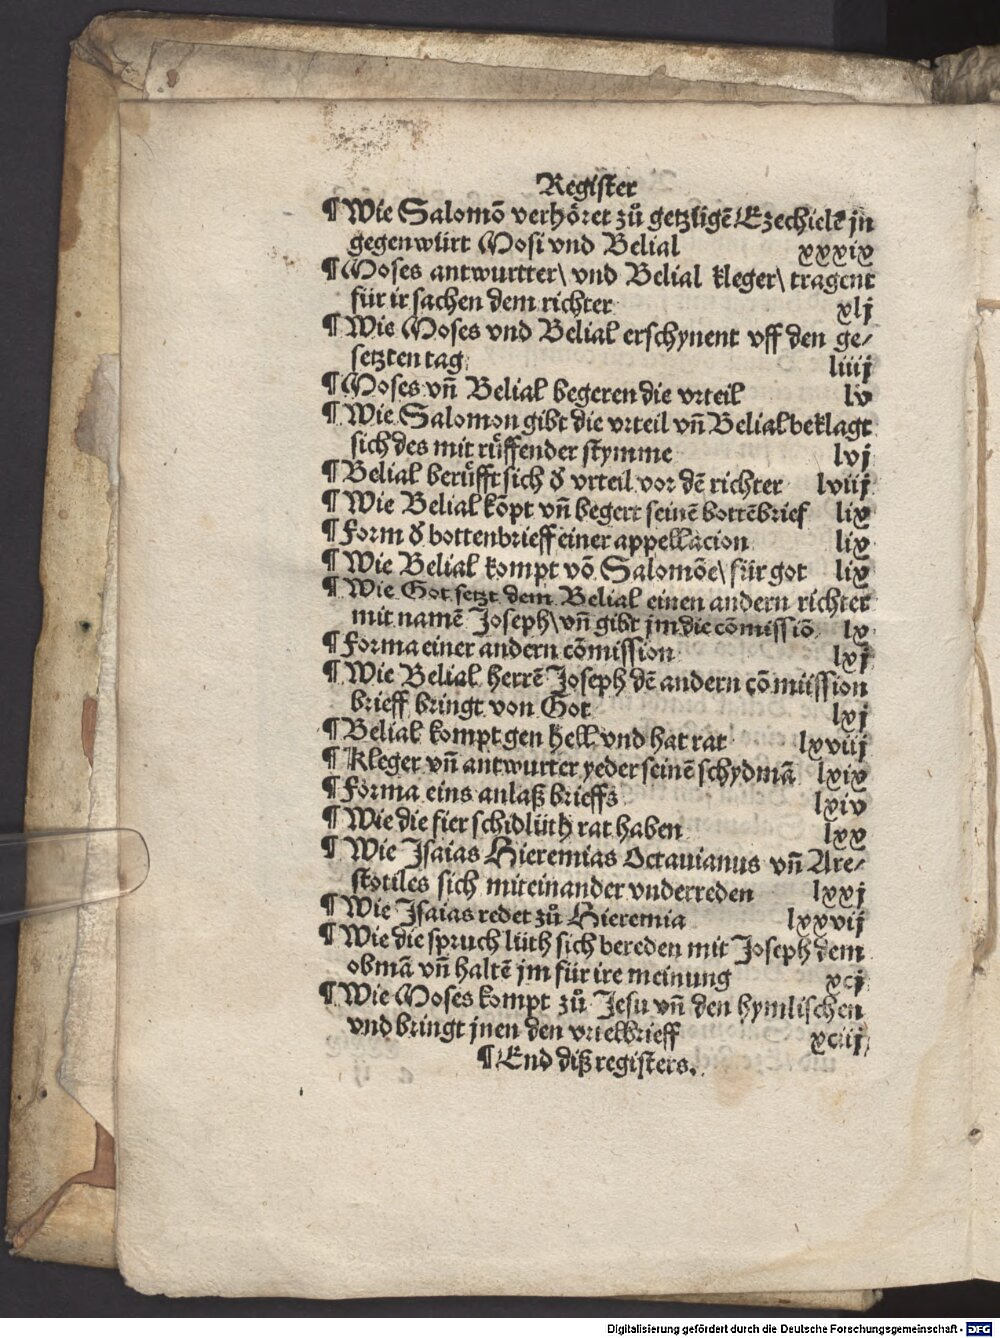 Register
¶ Wie Salomō verhöret zů getzligē Ezechielē jn
gegenwürt Mosi vnd Belial xxxix
¶ Moses antwurtter\ vnd Belial kleger\ tragent
für ir sachen dem richter xlj
¶ Wie Moses vnd Belial erschynent vff den ge⸗
setzten tag liiij
¶ Moses vñ Belial begeren die vrteil lv
¶ Wie Salomon gibt die vrteil vñ Belial beklagt
sich des mit rüffender stymme lvj
¶ Belial berüfft sich ď vrteil vor dē richter lviij
¶ Wie Belial kōpt vñ begert seinē bottēbrief lix
¶ Form ď bottenbrieff einer appellacion lix
¶ Wie Belial kompt vō Salomōe\ für got lix
¶ Wie Got setzt dem Belial einen andern richter
mit namē Joseph\ vñ gibt jm die cōmissiō lx
¶ Forma einer andern cōmission lxj
¶ Wie Belial herrē Joseph dē andern cōmiission
brieff bringt von Got lxj
¶ Belial kompt gen hell vnd hat rat lxviij
¶ Kleger vñ antwurter yeder seinē schydmā lxix
¶ Forma eins anlaß brieffs lxiv
¶ Wie die fier schidlüth rat haben lxx
¶ Wie Jsaias Hieremias Octauianus vñ Are⸗
stotiles sich miteinander vnderreden lxxj
¶ Wie Jsaias redet zů Hieremia lxxvij
¶ Wie die spruch lüth sich bereden mit Joseph dem
obmā vñ haltē jm für ire meinung xcj
¶ Wie Moses kompt zů Jesu vñ den hymlischen
vnd bringt jnen den vrtelbrieff xciij
¶ End diß registers.
Digitalisierung gefördert durch die Deutsche Forschungsgemeinschaft - DFG